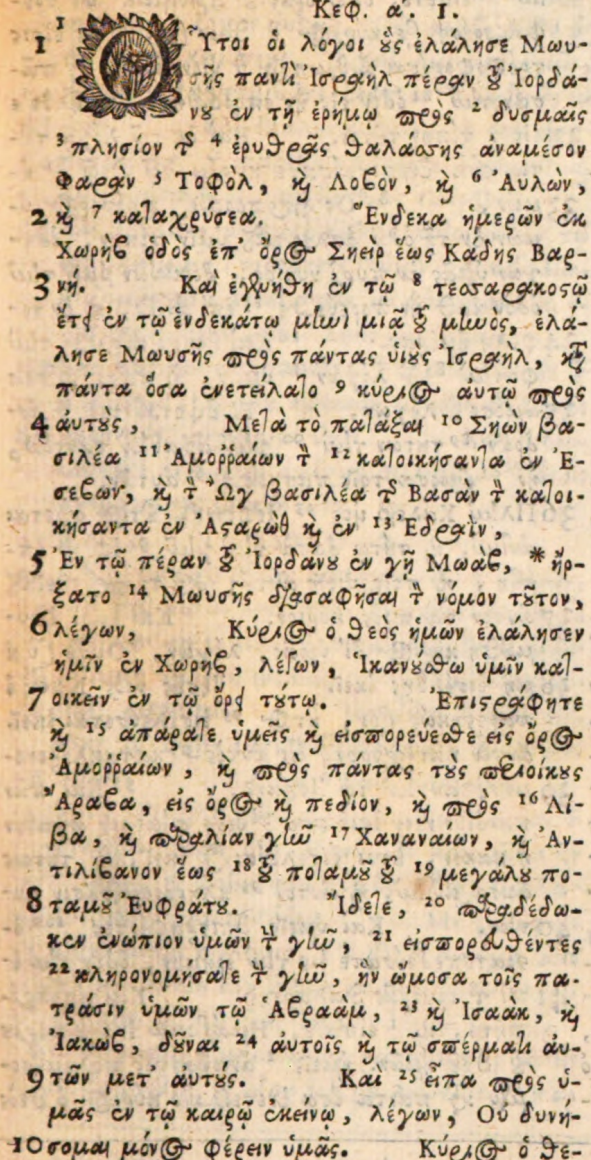 Κεφ. α'. 1.
1 ¹ Οὗτοι οἱ λόγοι οὓς ἐλάλησε Μωυ-
σῆς παντὶ Ἰσραὴλ πέραν τοῦ Ἰορδά-
νου ἐν τῇ ἐρήμῳ πρὸς ² δυσμαῖς
³ πλησίον τῆς ⁴ ἐρυθρᾶς θαλάσσης ἀναμέσον
Φαρὰν ⁵ Τοφὸλ, καὶ Λοβὸν, καὶ ⁶ Αὐλὼν,
2 καὶ ⁷ καταχρύσεα. Ἕνδεκα ἡμερῶν ἐκ
Χωρὴβ ὁδὸς ἐπ' ὄρος Σηεὶρ ἕως Κάδης Βαρ-
3 νή. Καὶ ἐγενήθη ἐν τῷ ⁸ τεσσαρακοστῷ
ἔτει ἐν τῷ ἑνδεκάτῳ μηνὶ μιᾷ τοῦ μηνὸς, ἐλά-
λησε Μωυσῆς πρὸς πάντας υἱοὺς Ἰσραὴλ, κατὰ
πάντα ὅσα ἐνετείλατο ⁹ κύριος αὐτῷ πρὸς
4 αὐτοὺς, Μετὰ τὸ πατάξαι ¹⁰ Σηὼν βα-
σιλέα ¹¹ Ἀμοῤῥαίων τὸν ¹² κατοικήσαντα ἐν Ἐ-
σεβὼν, καὶ τὸν Ὢγ βασιλέα τῆς Βασὰν τὸν κατοι-
κήσαντα ἐν Ἀσταρὼθ καὶ ἐν ¹³ Ἐδραῒν,
5 Ἐν τῷ πέραν τοῦ Ἰορδάνου ἐν γῇ Μωὰβ, * ἤρ-
ξατο ¹⁴ Μωυσῆς διασαφῆσαι τὸν νόμον τοῦτον,
6 λέγων, Κύριος ὁ θεὸς ἡμῶν ἐλάλησεν
ἡμῖν ἐν Χωρὴβ, λέγων, Ἱκανούσθω ὑμῖν κατ-
7 οικεῖν ἐν τῷ ὄρει τούτῳ. Ἐπιστράφητε
καὶ ¹⁵ ἀπάρατε ὑμεῖς καὶ εἰσπορεύεσθε εἰς ὄρος
Ἀμοῤῥαίων, καὶ πρὸς πάντας τοὺς περιοίκους
Ἄραβα, εἰς ὄρος καὶ πεδίον, καὶ πρὸς ¹⁶ Λί-
βα, καὶ παραλίαν γῆν ¹⁷ Χαναναίων, καὶ Ἀν-
τιλίβανον ἕως ¹⁸ τοῦ ποταμοῦ τοῦ ¹⁹ μεγάλου πο-
8 ταμοῦ Εὐφράτου. Ἴδετε, ²⁰ παραδέδω-
κεν ἐνώπιον ὑμῶν τὴν γῆν, ²¹ εἰσπορευθέντες
²² κληρονομήσατε τὴν γῆν, ἣν ὤμοσα τοῖς πα-
τράσιν ὑμῶν τῷ Ἀβραὰμ, ²³ καὶ Ἰσαὰκ, καὶ
Ἰακὼβ, δοῦναι ²⁴ αὐτοῖς καὶ τῷ σπέρματι αὐ-
9 τῶν μετ' αὐτούς. Καὶ ²⁵ εἶπα πρὸς ὑ-
μᾶς ἐν τῷ καιρῷ ἐκείνῳ, λέγων, Οὐ δυνή-
10 σομαι μόνος φέρειν ὑμᾶς. Κύριος ὁ θε-